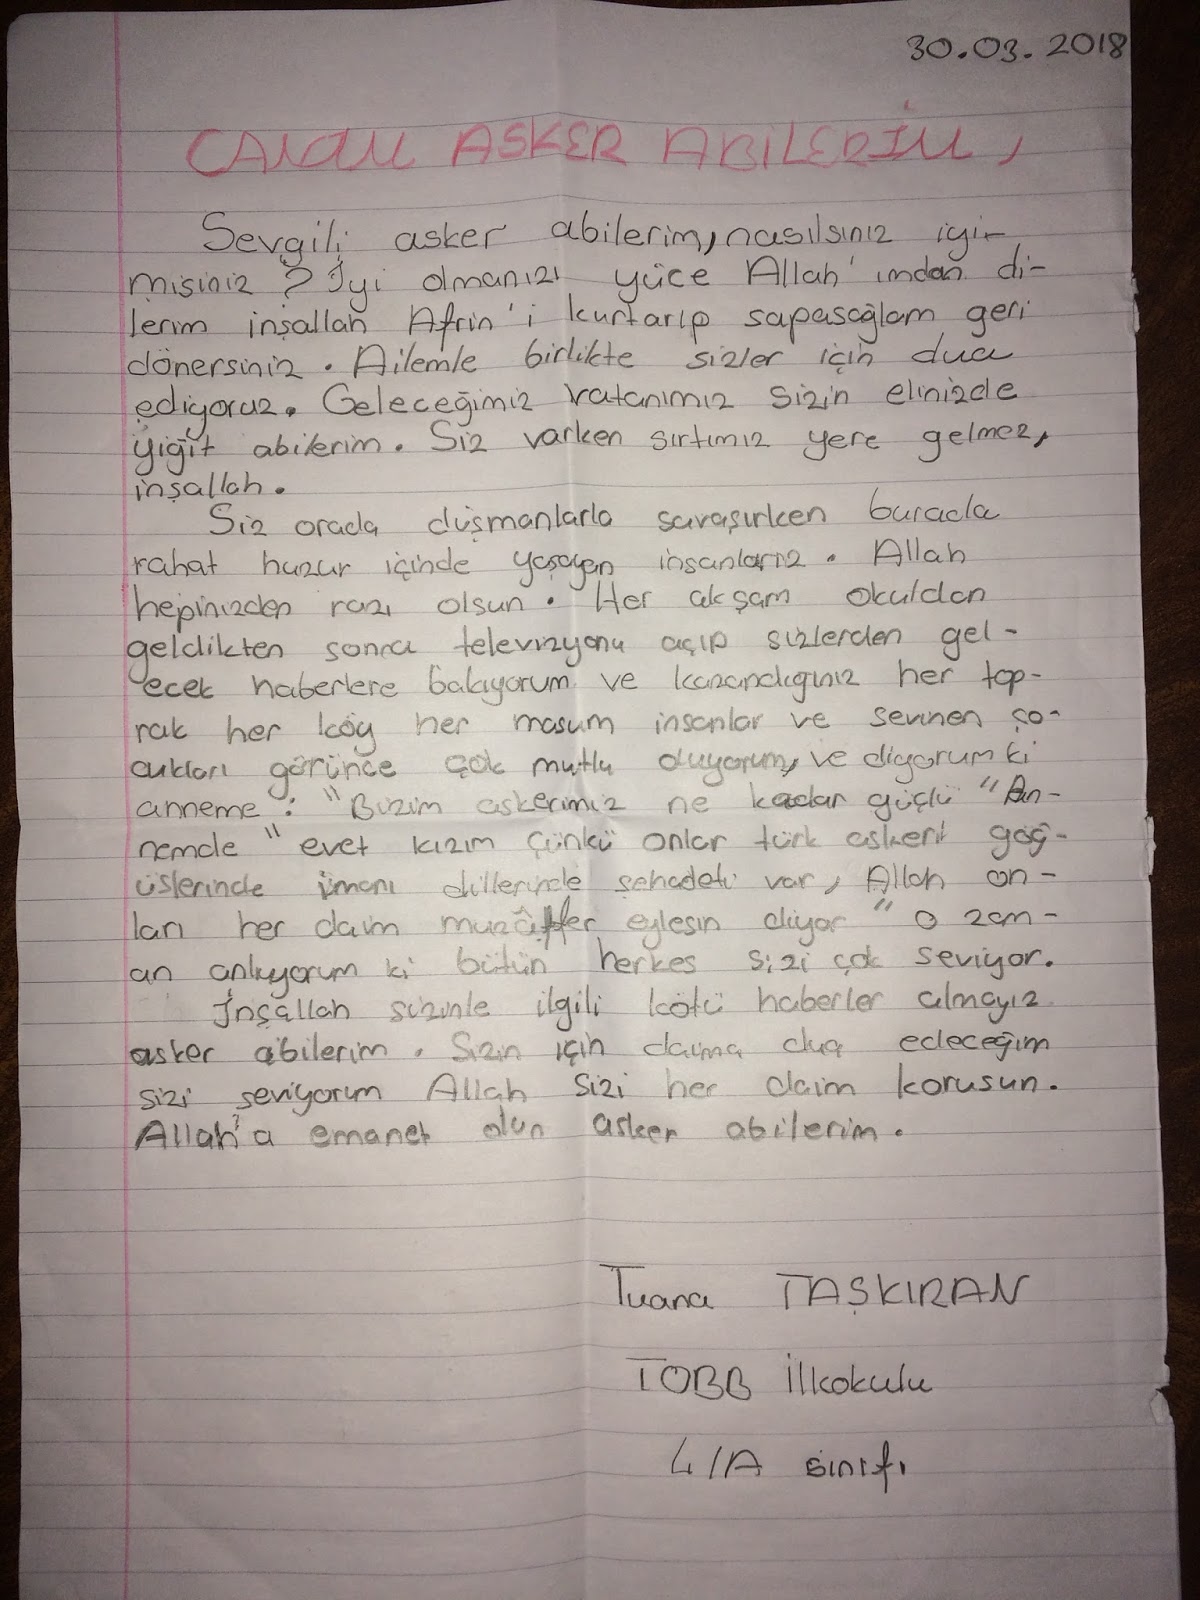 30.03.2018
CANIM ASKER ABİLERİM,
Sevgili asker abilerim, nasılsınız iyi-
misiniz ? İyi olmanızı yüce Allah'ımdan di-
lerim inşallah Afrin'i kurtarıp sapasağlam geri
dönersiniz. Ailemle birlikte sizler için dua
ediyoruz. Geleceğimiz vatanımız sizin elinizde
yiğit abilerim. Siz varken sırtımız yere gelmez,
inşallah.
Siz orada düşmanlarla savaşırken burada
rahat huzur içinde yaşayan insanlarız. Allah
hepinizden razı olsun. Her akşam okuldan
geldikten sonra televizyonu açıp sizlerden gel-
ecek haberlere bakıyorum ve kazandığınız her top-
rak her köy her masum insanlar ve sevinen ço-
cukları görünce çok mutlu oluyorum, ve diyorum ki
anneme: "Bizim askerimiz ne kadar güçlü" An-
nemde "evet kızım çünkü onlar türk askeri göğ-
üslerinde imanı dillerinde şehadeti var, Allah on-
ları her daim muzaffer eylesin diyor" o zam-
an anlıyorum ki bütün herkes sizi çok seviyor.
İnşallah sizinle ilgili kötü haberler almayız
asker abilerim. Sizin için daima dua edeceğim
sizi seviyorum Allah sizi her daim korusun.
Allah'a emanet olun asker abilerim.
Tuana TAŞKIRAN
TOBB İlkokulu
4/A sınıfı